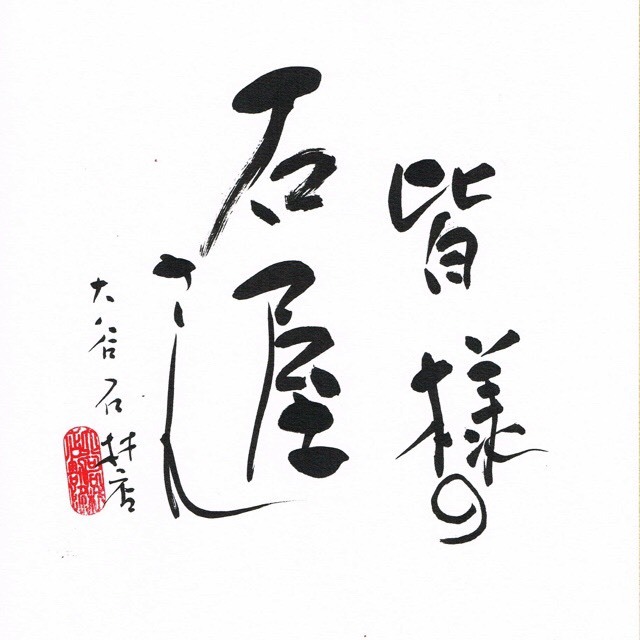 皆様の
石屋
さん
大谷石材店